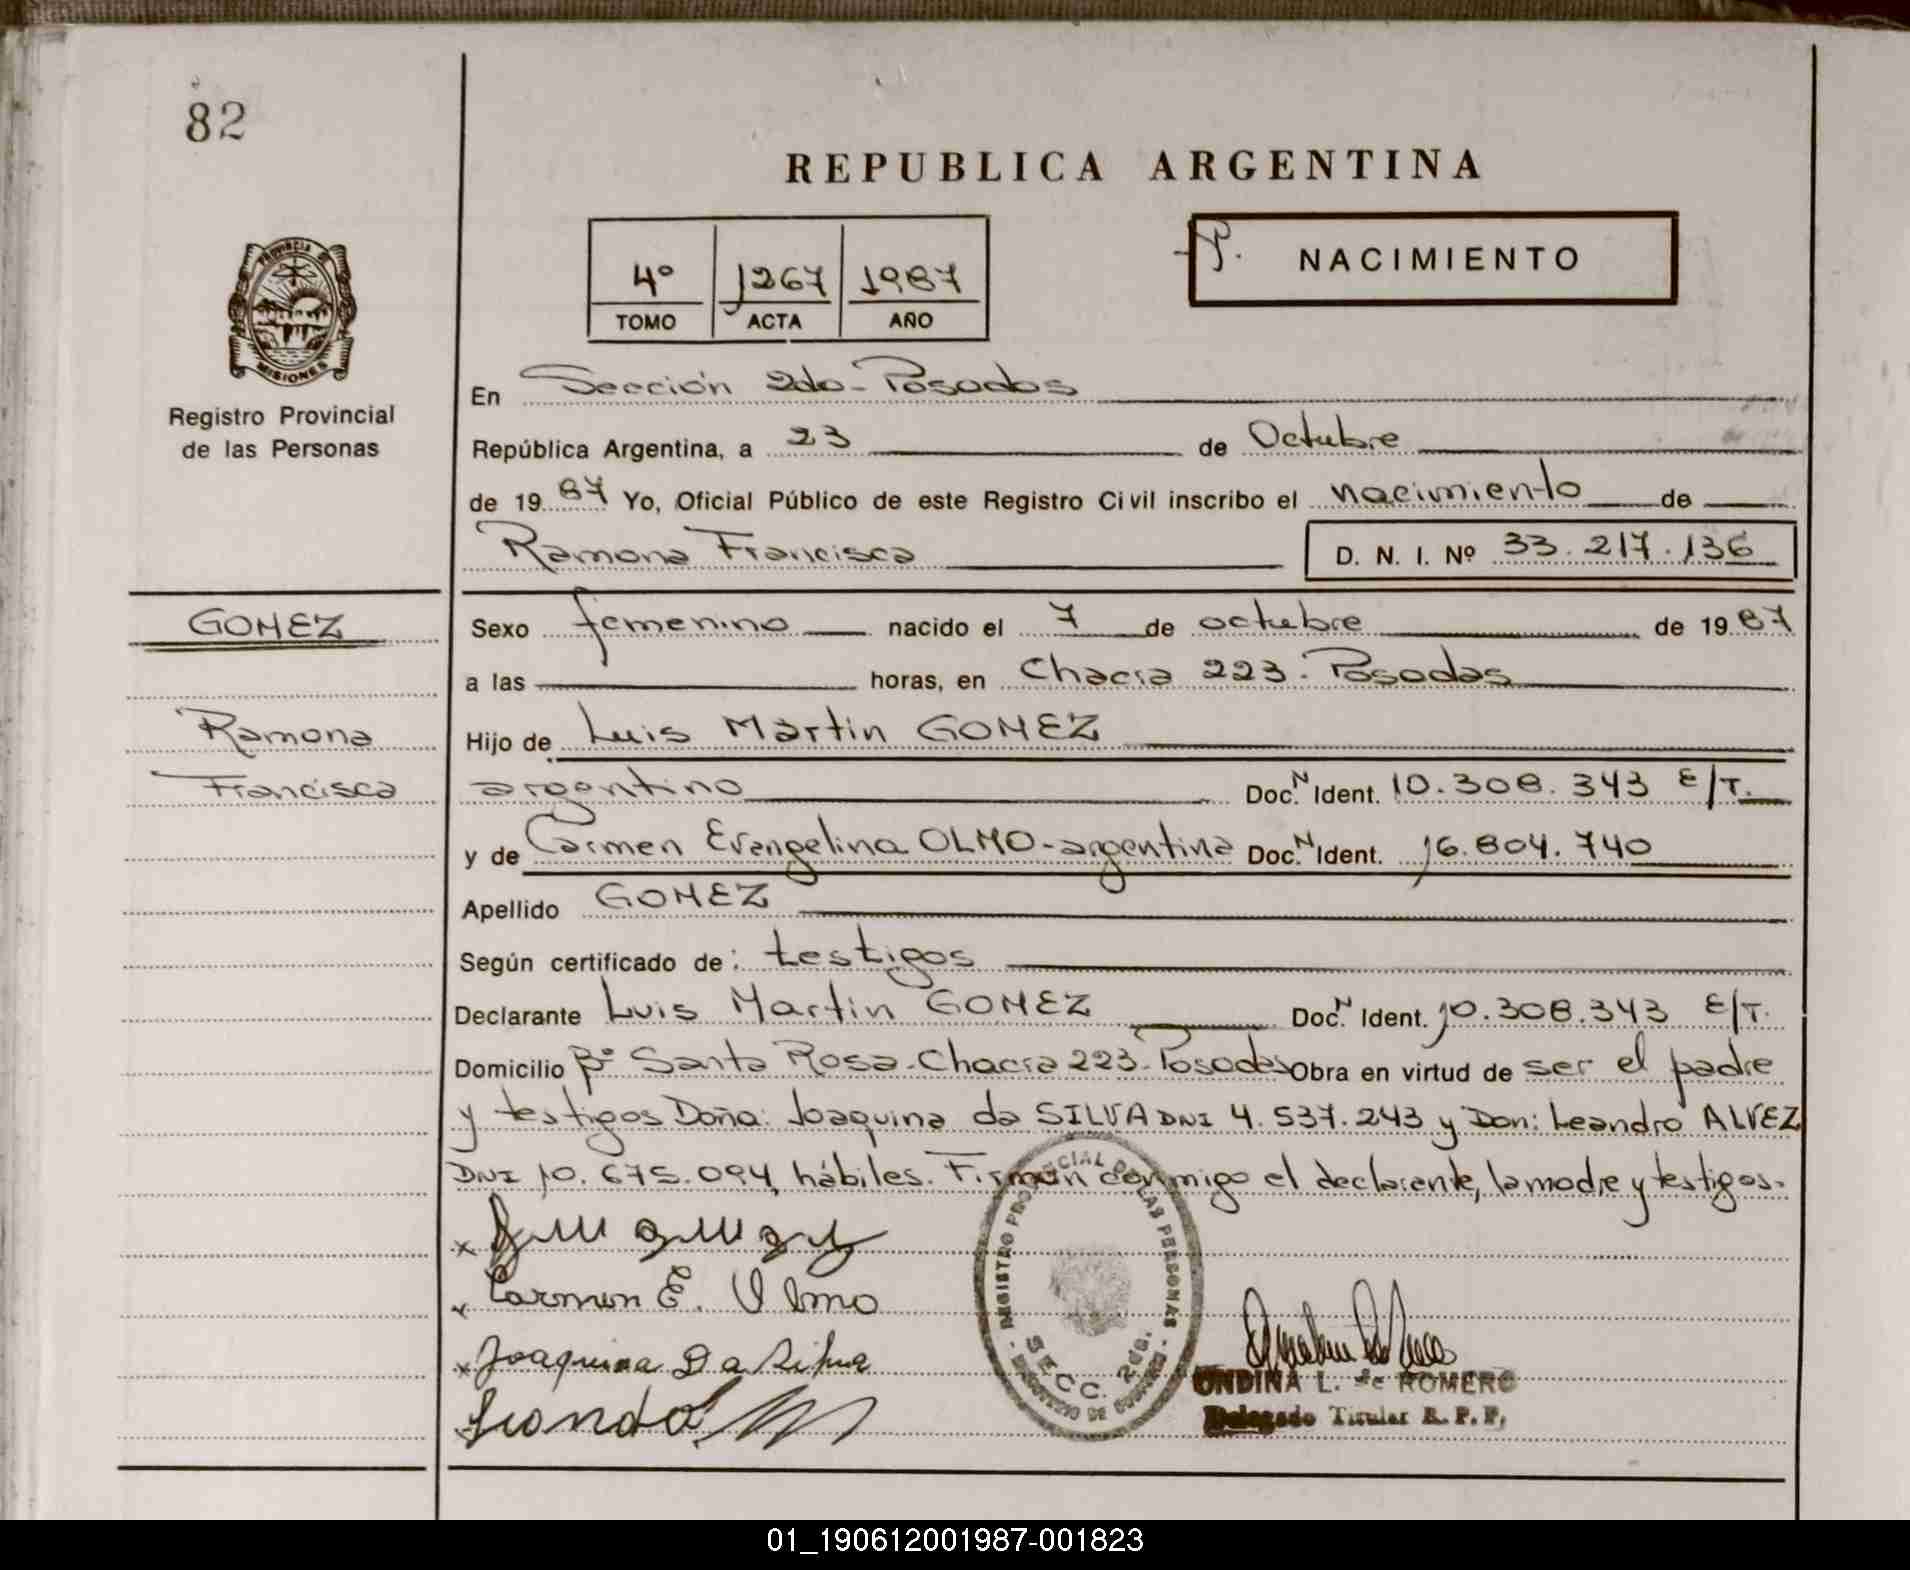 82
REPUBLICA ARGENTINA
4º 1267 1987
TOMO ACTA AÑO
NACIMIENTO
PROVINCIA DE
MISIONES
Registro Provincial
de las Personas
En Sección 2da - Posadas
República Argentina, a 23 de Octubre
de 1987 Yo, Oficial Público de este Registro Civil inscribo el nacimiento de
Ramona Francisca D. N. I. Nº 33.217.136
GOMEZ
Ramona
Francisca
Sexo femenino nacido el 7 de octubre de 1987
a las horas, en Chacra 223 - Posadas
Hijo de Luis Martin GOMEZ
argentino Doc. N Ident. 10.308.343 E/T.
y de Carmen Evangelina OLMO - argentina Doc. N Ident. 16.804.740
Apellido GOMEZ
Según certificado de: testigos
Declarante Luis Martin GOMEZ Doc. N Ident. 10.308.343 E/T.
Domicilio Bº Santa Rosa - Chacra 223 - Posadas Obra en virtud de ser el padre
y testigos Doña: Joaquina da SILVA DNI 4.537.243 y Don: Leandro ALVEZ
DNI 10.675.094, hábiles. Firman conmigo el declarante, la madre y testigos.
x
x Carmen E. Olmo
x Joaquina Da Silva
REGISTRO PROVINCIAL DE LAS PERSONAS
SECC. 2da.
ONDINA L. de ROMERO
Delegado Titular R. P. P.
01_190612001987-001823